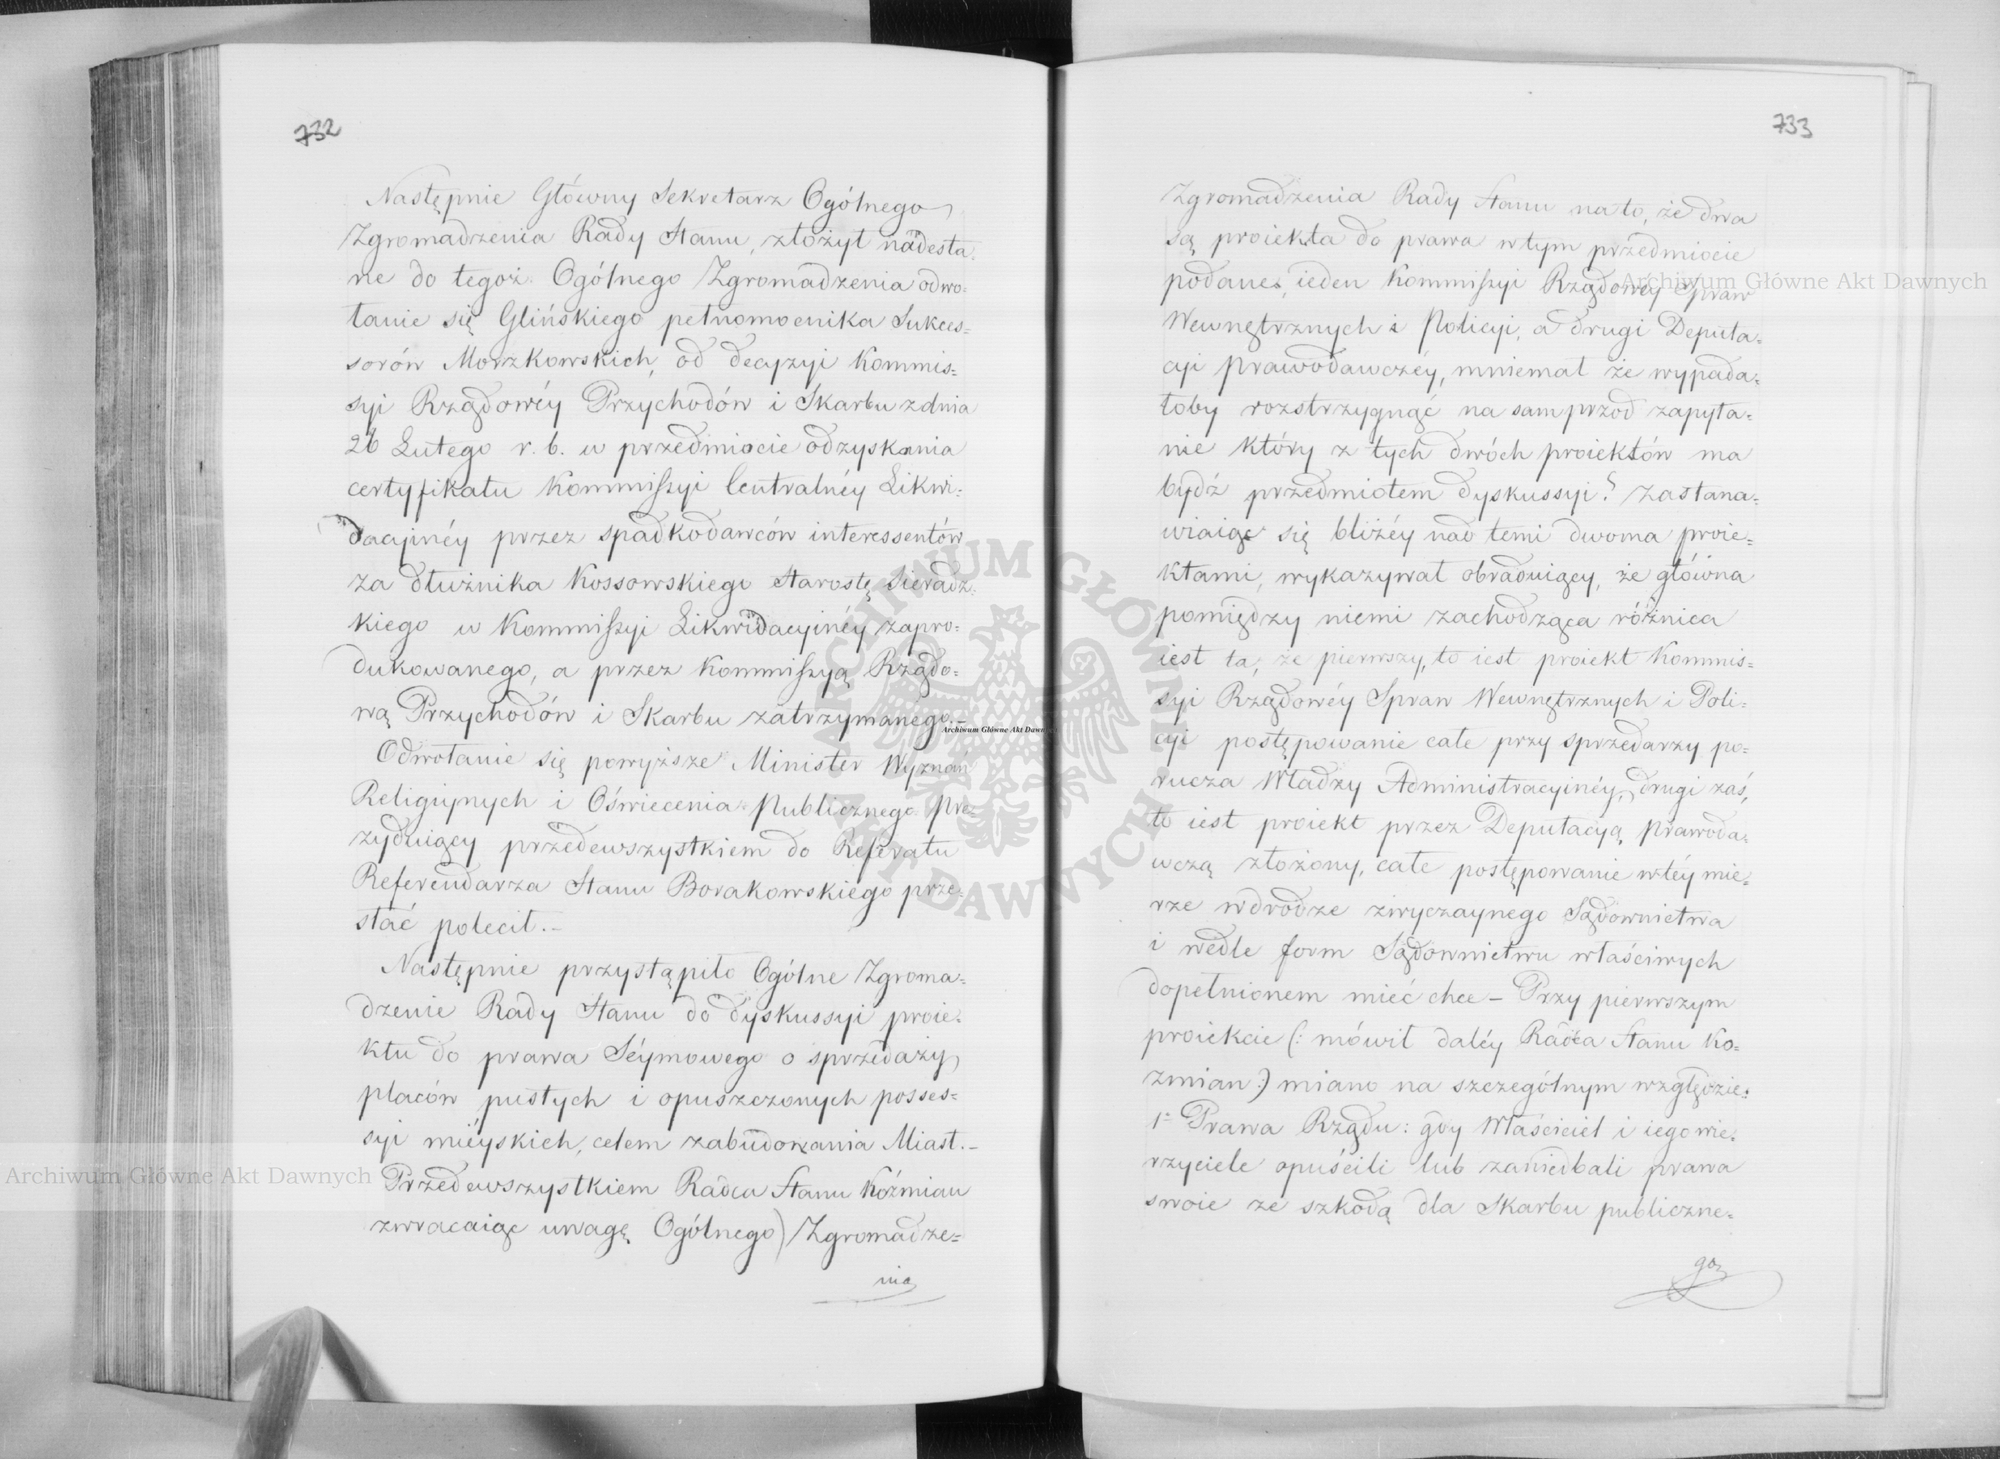 732
Następnie Główny Sekretarz Ogólnego
Zgromadzenia Rady Stanu, złożył nadesła-
ne do tegoż Ogólnego Zgromadzenia odwo-
łanie się Glińskiego pełnomocnika Sukces-
sorów Morzkowskich, od decyzyi Kommis-
syi Rządowéy Przychodów i Skarbu z dnia
26 Lutego r. b. w przedmiocie odzyskania
certyfikatu Kommissyi Centralnéy Likwi-
dacyinéy przez spadkodawców interessentów
za dłużnika Kossowskiego Starostę Sieradz-
kiego w Kommissyi Likwidacyinéy zapro-
dukowanego, a przez Kommissyą Rządo-
wą Przychodów i Skarbu zatrzymanego.-
Odwołanie się powyższe Minister Wyznań
Religiynych i Oświecenia Publicznego Pre-
zyduiący przedewszystkiem do Referatu
Referendarza Stanu Borakowskiego prze-
słać polecił.-
Następnie przystąpiło Ogólne Zgroma-
dzenie Rady Stanu do dyskussyi proie-
ktu do prawa Séymowego o sprzedaży
placów pustych i opuszczonych posses-
syi miéyskich, celem zabudowania Miast.-
Przedewszystkiem Radca Stanu Koźmian
zwracaiąc uwagę Ogólnego) Zgromadze-
nia
733
Zgromadzenia Rady Stanu na to, że dwa
są proiekta do prawa w tym przedmiocie
podane, ieden Kommissyi Rządowéy Spraw
Wewnętrznych i Policyi, a drugi Deputa-
cyi Prawodawczéy, mniemał że wypada-
łoby rozstrzygnąć na samprzod zapyta-
nie który z tych dwóch proiektów ma
bydź przedmiotem dyskussyi? Zastana-
wiaiąc się bliżéy nad temi dwoma proie-
ktami, wykazywał obraduiącym, że główna
pomiędzy niemi zachodząca różnica
iest ta, że pierwszy, to iest proiekt Kommis-
syi Rządowéy Spraw Wewnętrznych i Poli-
cyi postępowanie całe przy sprzedarzy po-
rucza Władzy Administracyinéy, drugi zaś,
to iest proiekt przez Deputacyą Prawoda-
wczą złożony, całe postępowanie w téy mie-
rze w drodze zwyczaynego Sądownictwa
i wedle form Sądownictwu właściwych
dopełnionem mieć chce - Przy pierwszym
proiekcie (: mówił daléy Radca Stanu Ko-
zmian :) miano na szczególnym względzie:
1° Prawa Rządu: gdy Właściciel i iego wie-
rzyciele opuścili lub zaniedbali prawa
swoie ze szkodą dla Skarbu publiczne-
go
Archiwum Główne Akt Dawnych
Archiwum Główne Akt Dawnych
Archiwum Główne Akt Dawnych
ARCHIWUM GŁÓWNE AKT DAWNYCH